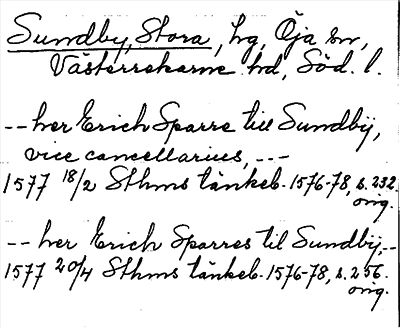 Sundby, Stora, hg, Öja sn,
Västerrekarne hd, Söd. l.
-- her Erich Sparre till Sundbÿ,
vice cancellarius, ---
1577 18/2 Sthms tänkeb. 1576-78, s. 232.
orig.
-- her Erich Sparres til Sundbÿ,--
1577 20/4 Sthms tänkeb. 1576-78, s. 256.
orig.